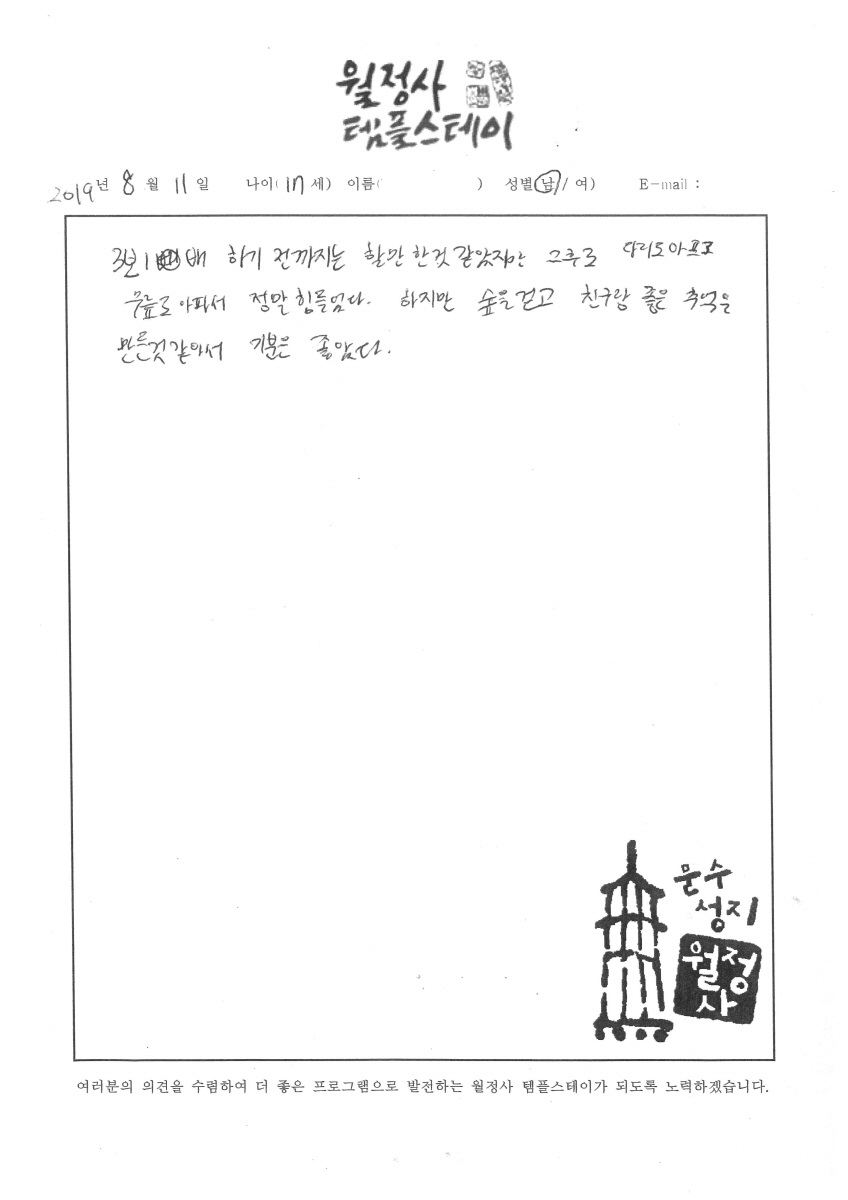 월정사
템플스테이
2019년 8월 11일 나이(17세) 이름( ) 성별(남/여) E-mail :
3보1배 하기 전까지는 할만 한것 같았지만 그후로 다리도아프고
무릎도 아파서 정말 힘들었다. 하지만 숲을걷고 친구랑 좋은 추억을
만든것같아서 기분은 좋았다.
문수
성지
월정
사
여러분의 의견을 수렴하여 더 좋은 프로그램으로 발전하는 월정사 템플스테이가 되도록 노력하겠습니다.